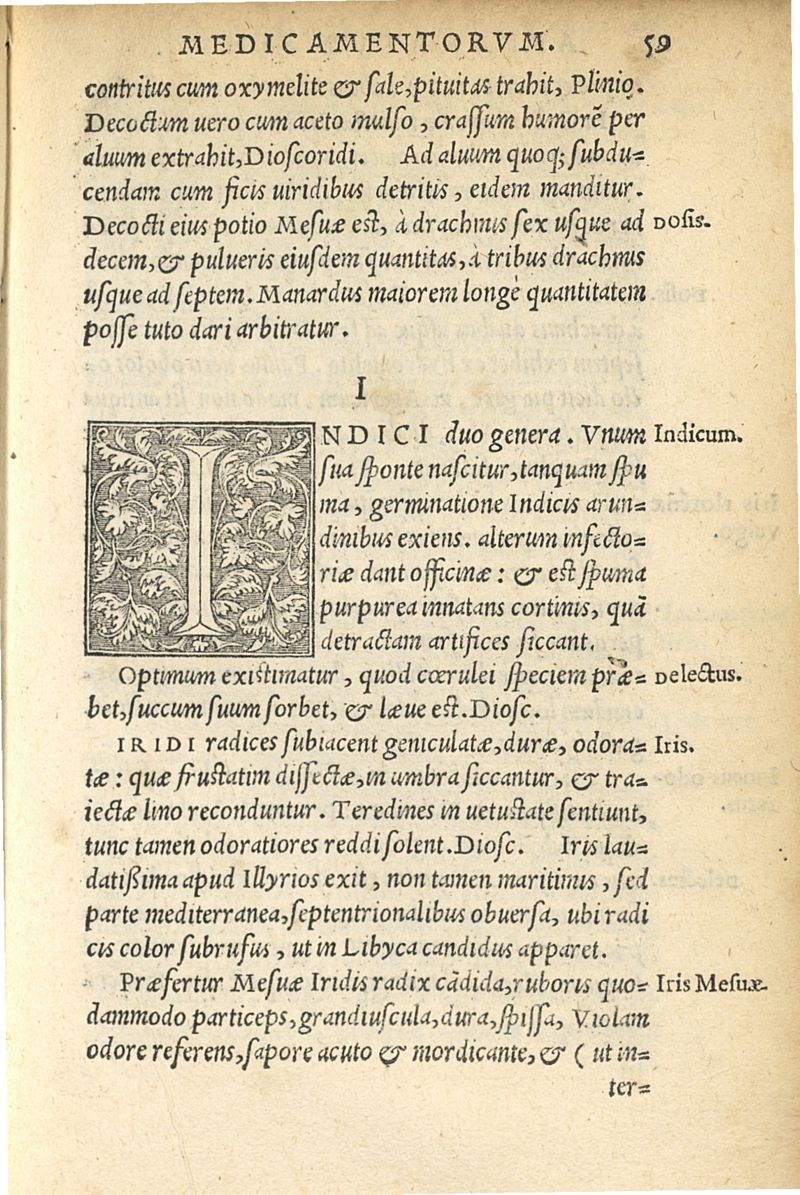 MEDICAMENTORVM. 59
contritus cum oxymelite & sale, pituitas trahit, Plinio.
Decoctum uero cum aceto mulso, crassum humorẽ per
aluum extrahit, Dioscoridi. Ad aluum quoq; subdu=
cendam cum ficis uiridibus detritis, eidem manditur.
Decocti eius potio Mesuæ est, à drachmis sex usque ad Dosis.
decem, & pulueris eiusdem quantitas, à tribus drachmis
usque ad septem. Manardus maiorem longè quantitatem
posse tuto dari arbitratur.
I
INDICI duo genera. Vnum Indicum.
sua sponte nascitur, tanquam spu
ma, germinatione Indicis arun=
dinibus exiens. alterum infecto=
riæ dant officinæ: & est spuma
purpurea innatans cortinis, quã
detractam artifices siccant.
Optimum existimatur, quod cœrulei speciem præ= Delectus.
bet, succum suum sorbet, & læue est. Diosc.
IRIDI radices subiacent geniculatæ, duræ, odora= Iris.
tæ: quæ frustatim dissectæ, in umbra siccantur, & tra=
iectæ lino reconduntur. Teredines in uetustate sentiunt,
tunc tamen odoratiores reddi solent. Diosc. Iris lau=
datißima apud Illyrios exit, non tamen maritimis, sed
parte mediterranea, septentrionalibus obuersa, ubi radi
cis color subrufus, ut in Libyca candidus apparet.
Præfertur Mesuæ Iridis radix cãdida, ruboris quo= Iris Mesuæ.
dammodo particeps, grandiuscula, dura, spissa, Violam
odore referens, sapore acuto & mordicante, & (ut in=
ter=